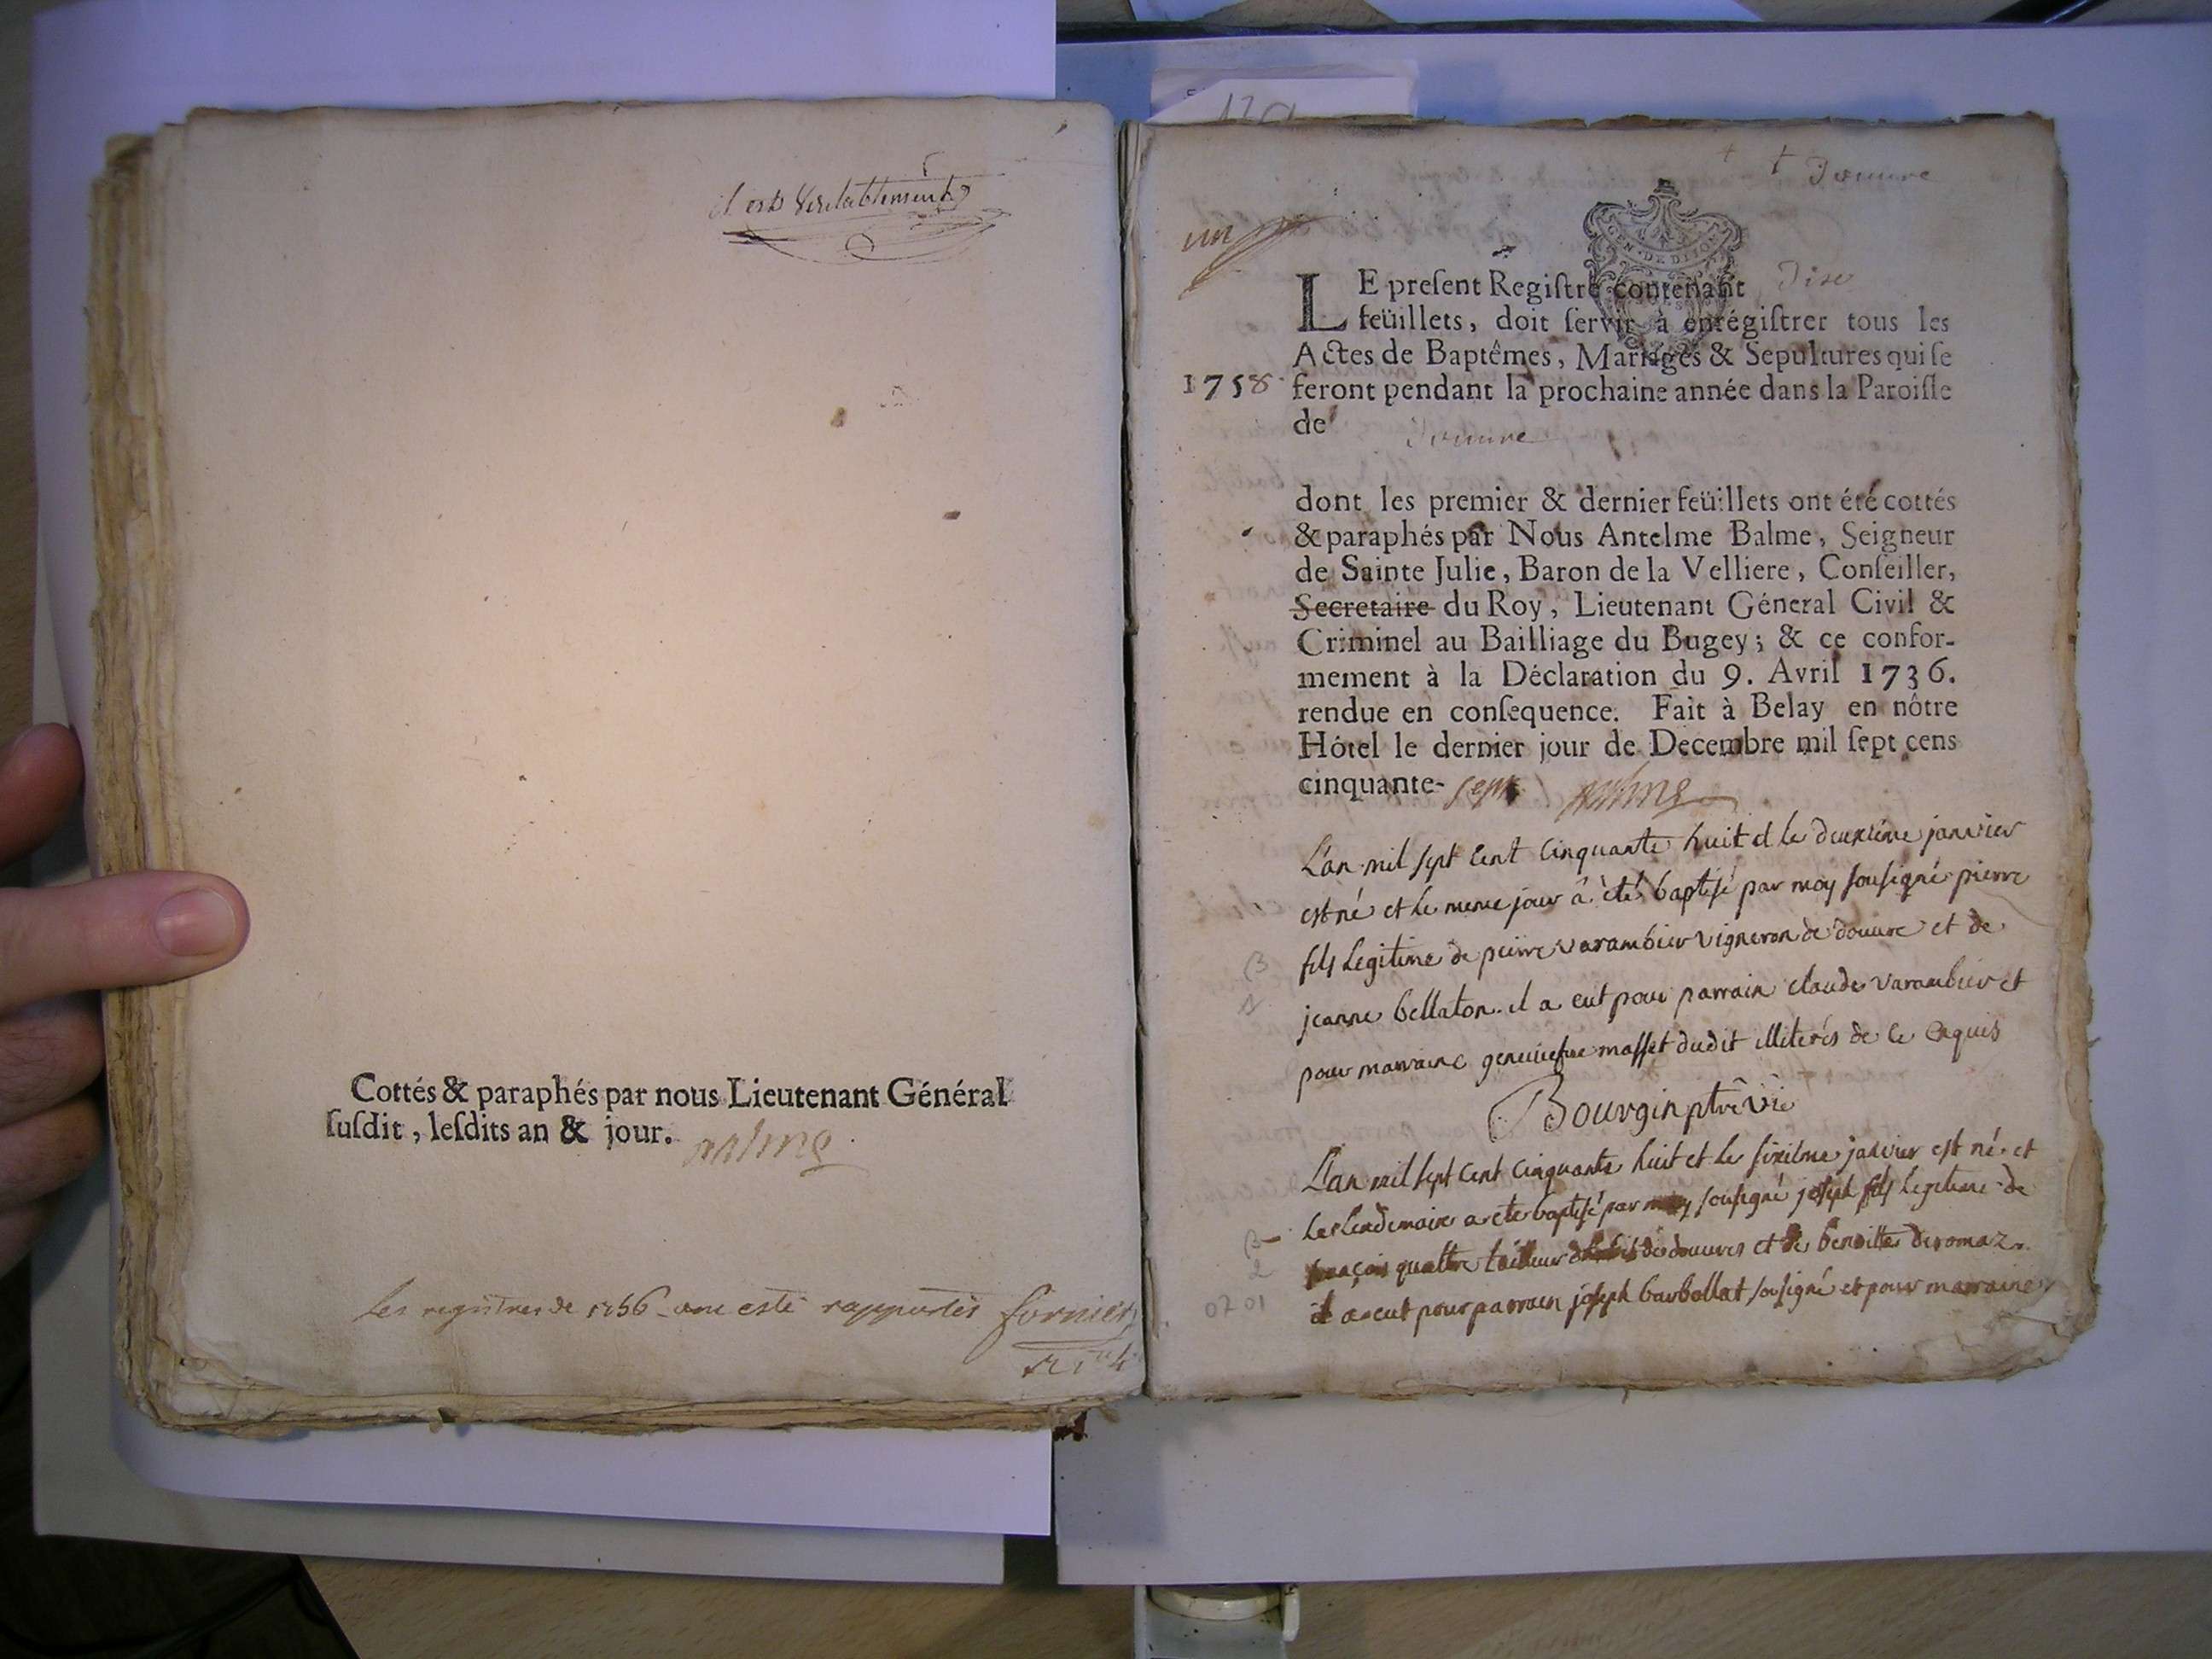 il est Veritablement
Cottés & paraphés par nous Lieutenant Général
ſuſdit, leſdits an & jour. Balme
Les registres de 1756 ont esté rapportés fornier
+ + Douvre
un
GEN · DE DIJON
LE preſent Regiſtre contenant Dix
feüillets, doit ſervir à enrégiſtrer tous les
Actes de Baptêmes, Mariages & Sepultures qui ſe
1758 feront pendant la prochaine année dans la Paroiſſe
de Douvre
dont les premier & dernier feüillets ont été cottés
& paraphés par Nous Antelme Balme, Seigneur
de Sainte Julie, Baron de la Velliere, Conſeiller,
Secretaire du Roy, Lieutenant Géneral Civil &
Criminel au Bailliage du Bugey; & ce confor-
mement à la Déclaration du 9. Avril 1736.
rendue en conſequence. Fait à Belay en nôtre
Hôtel le dernier jour de Decembre mil ſept cens
cinquante- sept Balme
L'an mil sept cent cinquante huit et le deuxiéme janvier
est né et le meme jour a été baptisé par moy sousigné pierre
B fils legitime de pierre varambier vigneron de douvre et de
1 jeanne bellaton. il a eut pour parrain claude varambier et
pour marraine genevieve masset dudit illiterés de ce enquis
Bourgin ptre vic
L'an mil sept cent cinquante huit et le sixiéme janvier est né et
B le lendemain a eté baptisé par moy sousigné joseph fils legitime de
2 françois quattre tailleur d'habits de douvres et de benoitte deromaz.
0701 il a eut pour parrain joseph barbollat sousigné et pour marraine